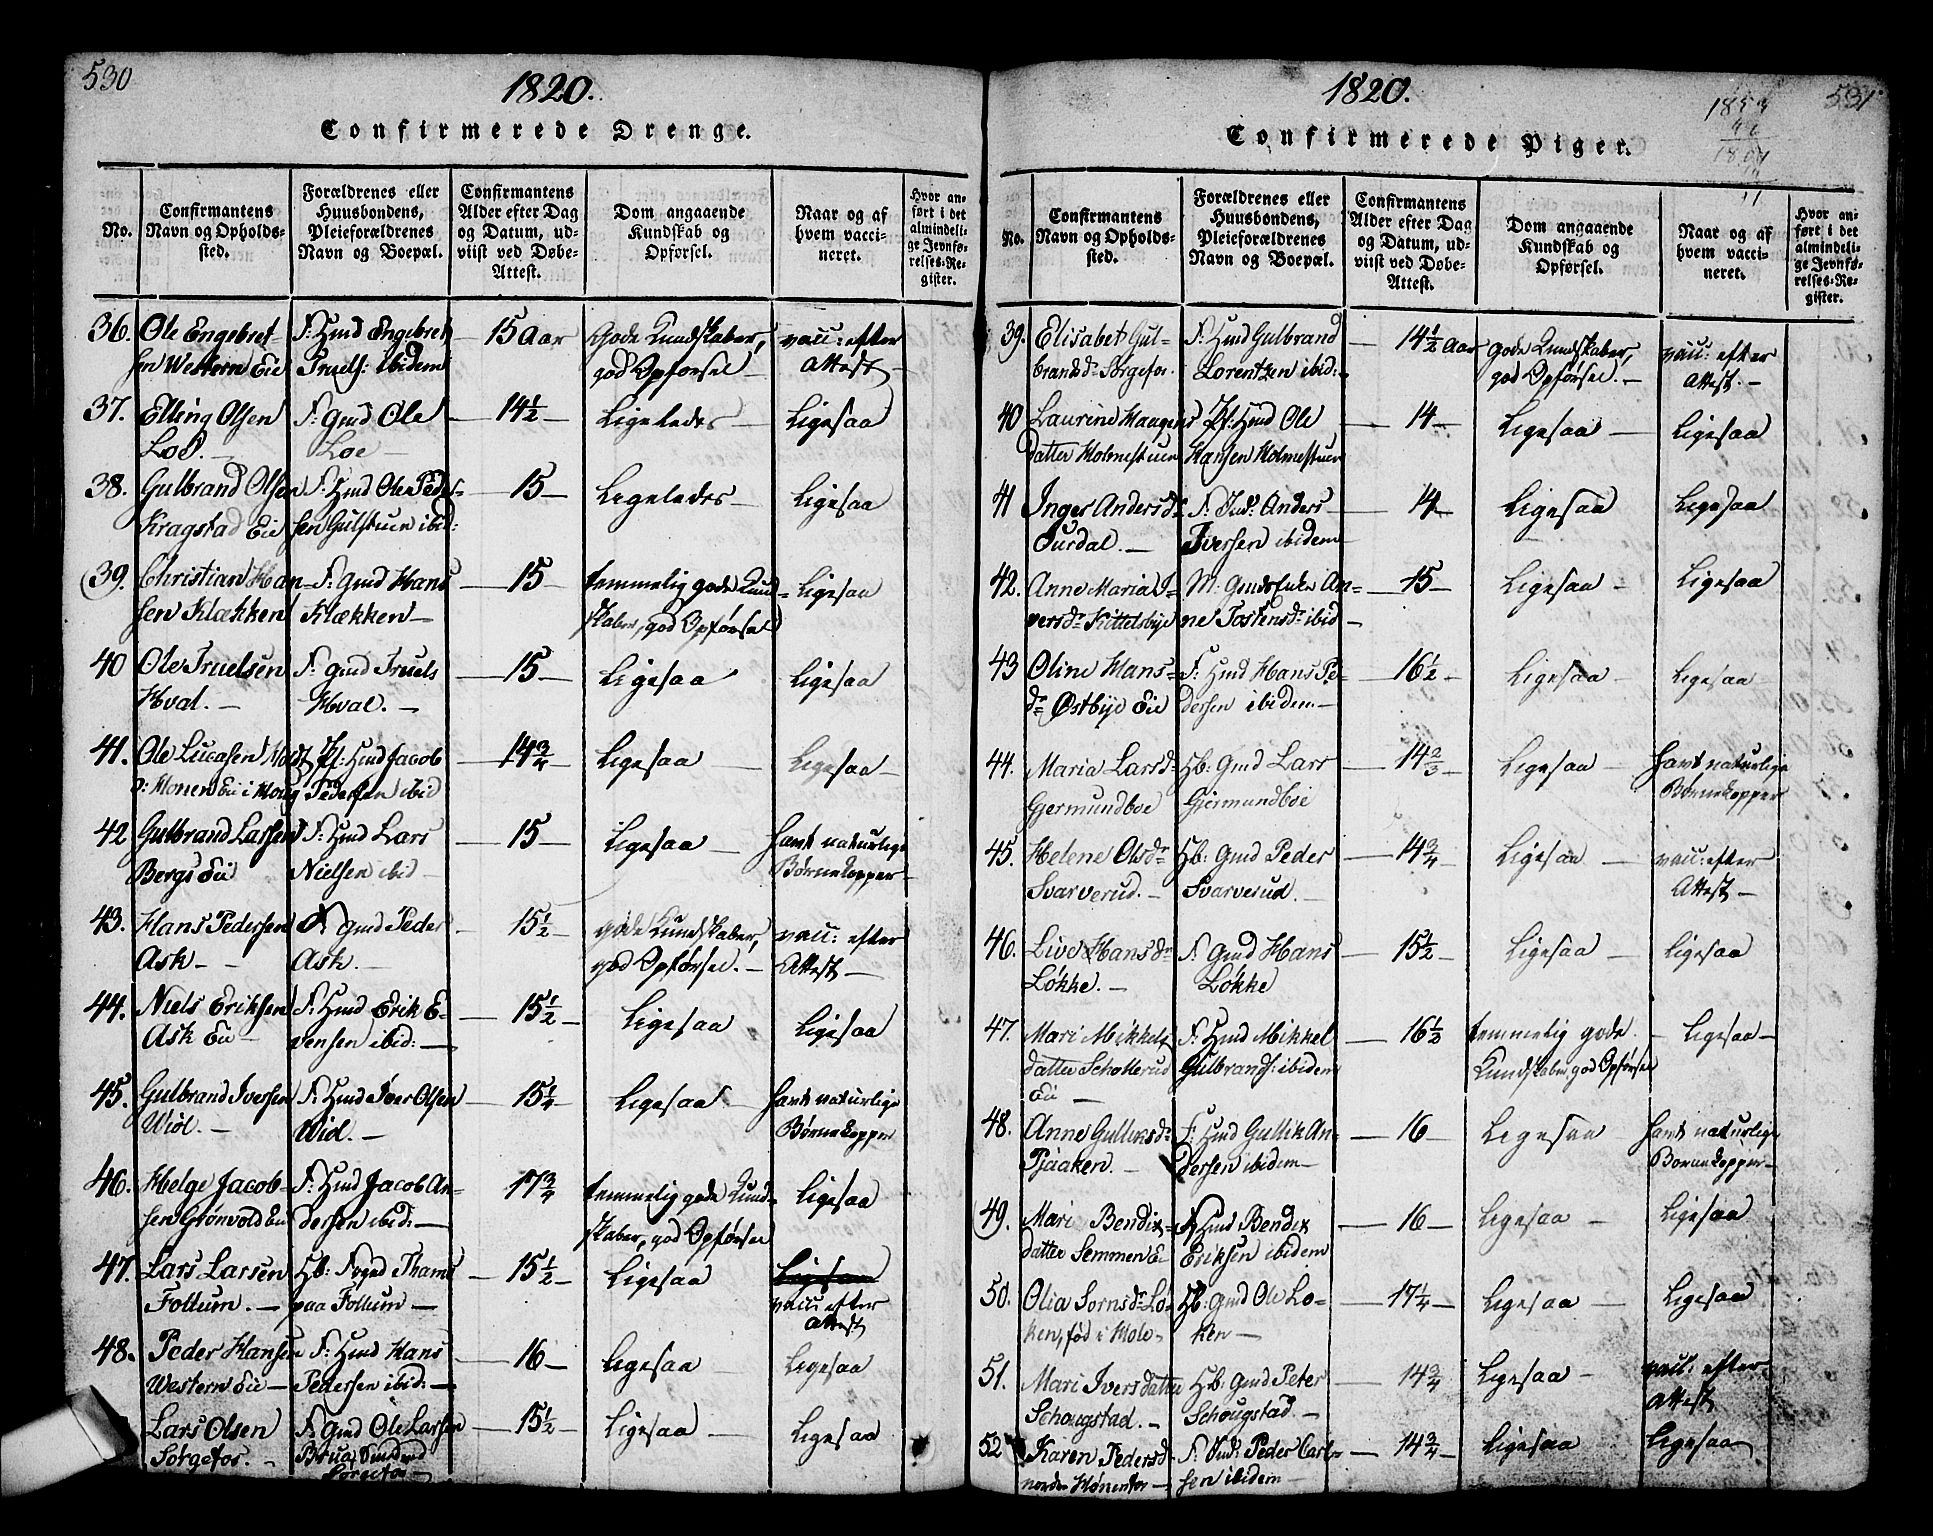 530
1820.
Confirmerede Drenge.
No.
Confirmantens Navn og Opholdssted.
Forældrenes eller Huusbondens, Pleieforældrenes Navn og Boepæl.
Confirmantens Alder efter Dag og Datum, udviist ved Døbe-Attest.
Dom angaaende Kundskab og Opførsel.
Naar og af hvem vaccineret.
Hvor anført i det almindelige Jevnførelses-Register.
36. Ole Engebret- F: Hmd Engebret — 15 Aar Gode Kundskaber, vacc: efter
sen Western Eie Truels: ibidem god Opførsel — Attest —
37. Elling Olsen F: Gmd Ole — 14½ — Ligeledes — Ligesaa
Loe. — Loe —
38. Gulbrand Olsen F: Hmd Ole Peder- — 15 — Ligeledes — Ligesaa
Kragstad Eie sen Gulstuen ibid:
39. Christian Han- F: Gmd Hans — 15 temmelig gode Kund- Ligesaa
sen Klækken Klækken — skaber, god Opførsel
40 Ole Truelsen F: Gmd Truels — 15 — Ligesaa Ligesaa
Hval. — Hval. —
41. Ole Lucasen Pf: Hmd Jacob — 14¾ — Ligesaa Ligesaa —
Pedersen ibid
42 Gulbrand Larsen F: Hmd Lars — 15 — Ligesaa — havt naturlige
Bergs Eie Nielsen ibid — Børnekopper —
43. Hans Pedersen F Gmd Peder — 15½ — gode Kundskaber, vacc: efter
Ask — Ask. — god Opførsel. — Attest —
44. Niels Eriksen F: Hmd Erik E- — 15½ — Ligesaa Ligesaa
Ask Eie — vensen ibid: —
45. Gulbrand Iversen F: Hmd Iver Olsen — 15¼ — Ligesaa — havt naturlige
Wiol. — Wid. — Børnekopper
46. Helge Jacob- F: Hmd Jacob An- — 17¾ temmelig gode Kund- Ligesaa
sen Grønvold Eie dersen ibid: — skaber, god Opførsel
47. Lars Larsen Hb: Gmd Thams — 15½ — Ligesaa Ligesaa
Follum. — paa Follum — vacc: efter
Attest
48. Peder Hansen F: Hmd Hans — 16 — Ligesaa Ligesaa
Western Eie — Pedersen ibid: —
Lars Olsen F: Gmd Ole Larsen — 15½ — Ligesaa — Ligesaa
Sørgefos. —
Sørgefos —
531
1820.
Confirmerede Piger.
No.
Confirmantens Navn og Opholdssted.
Forældrenes eller Huusbondens, Pleieforældrenes Navn og Boepæl.
Confirmantens Alder efter Dag og Datum, udviist ved Døbe-Attest.
Dom angaaende Kundskab og Opførsel.
Naar og af hvem vaccineret.
Hvor anført i det almindelige Jevnførelses-Register.
39. Elisabet Gul- F: Hmd Gulbrand — 14½ Aar gode Kundskaber, vacc: efter
brandsdr Sørgefos. Lorentzen ibid: — god Opførsel. — Attest. —
40 Laurine Haagens Pf: Hmd Ole — 14 — Ligesaa — Ligesaa
datter Holmestuen Hansen Holmestuen
41 Inger Andersdr F: Ind: Anders — 14 — Ligesaa Ligesaa
Ourdal. — Iversen ibidem —
42. Anne Maria I- M: Gmds Enke An- — 15 — Ligesaa — Ligesaa
versdr Kittelsbye ne Tostensdr ibid —
43 Oline Hans- F: Hmd Hans Pe- — 16½ — Ligesaa — Ligesaa
dr Østbye Eie dersen ibidem —
44. Maria Larsdr Hb: Gmd Lars — 14⅔ — Ligesaa — havt naturlige
Gjermundboe Gjermundboe Børnekopper
45. Helene Olsdr Hb: Gmd Peder — 14¾ — Ligesaa — vacc: efter
Svarverud. — Svarverud. — Attest —
46. Live Hansdr F: Gmd Hans — 15½ — Ligesaa — Ligesaa
Løkke. — Løkke
47. Mari Mikkels F: Hmd Mikkel — 16½ temmelig gode — Ligesaa —
datter Schollerud Gulbrands: ibidem Kundskaber, god Opførsel
Eie —
48. Anne Gulliksdr F: Hmd Gullik An- — 16 — Ligesaa havt naturlige
Pjaaken. — dersen ibidem — Børnekopper —
49. Mari Bendix- F: Hmd Bendix — 16 — Ligesaa — Ligesaa
datter Semmen Ei Eriksen ibidem
50. Olia Sørnsdr Lø- Hb: Gmd Ole Lø- — 17¼ — Ligesaa — Ligesaa
ken, fød i Hole — ken —
51. Mari Iversdatter Hb: Gmd Peter — 14¾ — Ligesaa — vacc: efter
Schougstad. — Schougstad. — Attest
52 Karen Pedersd F: Ind: Peder Carl- — 14¾ — Ligesaa — Ligesaa
norden Hønenfos — sen ibidem —